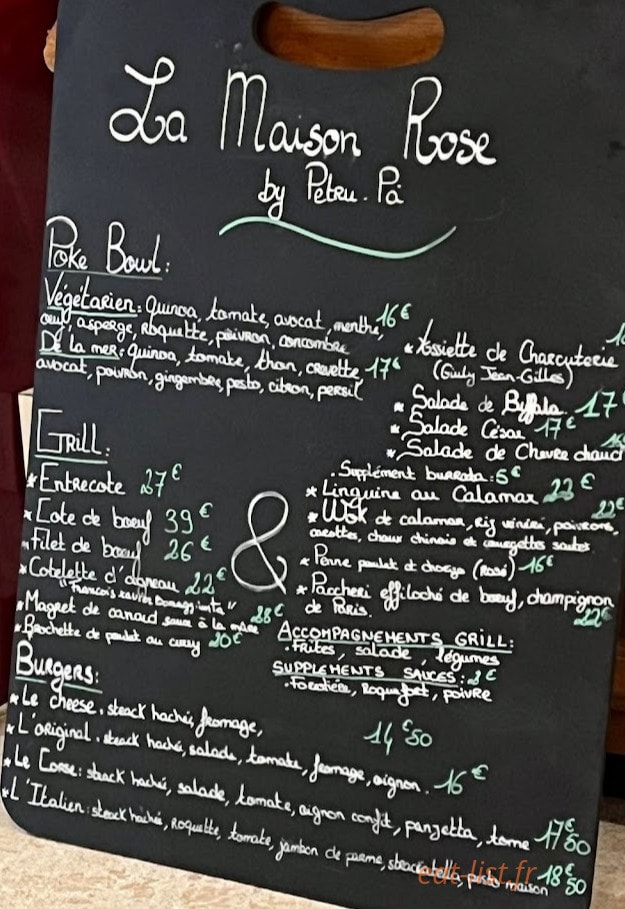 La Maison Rose
by Petru. Pà
Poke Bowl:
Végétarien: Quinoa, tomate, avocat, menthe, 16€
œuf, asperge, Roquette, poivron, concombre
De la mer: Quinoa, tomate, thon, crevette 17€
avocat, poivron, gingembre, pesto, citron, persil
* Assiette de Charcuterie
(Guily Jean-Gilles)
* Salade de Buffala 17
* Salade César 17€
* Salade de Chevre chaud
. Supplément burrata: 5€
Grill:
* Entrecote 27€
* Cote de bœuf 39€
* Filet de bœuf 26€
* Cotelette d'agneau 22€
* Magret de canard sauce à la mûre 28€
* Brochette de poulet au curry 20€
&
* Linguine au Calamar 22€
* Wok de calamar, riz vénéré, poivrons, 22€
carottes, choux chinois et courgettes sautés
* Penne poulet et chorizo (Rosé) 16€
* Paccheri effiloché de bœuf, champignon
de Paris. 22€
Accompagnements Grill:
. Frites, salade, légumes
Suppléments Sauces: 2€
. Forestière, Roquefort, poivre
Burgers:
* Le cheese. steack haché, fromage, 14€50
* L'original. steack haché, salade, tomate, fromage, oignon. 16€
* Le Corse: steack haché, salade, tomate, oignon confit, panzetta, tome 17€50
* L'Italien: steack haché, Roquette, tomate, jambon de parme, straciatella, pesto maison 18€50
eat-list.fr